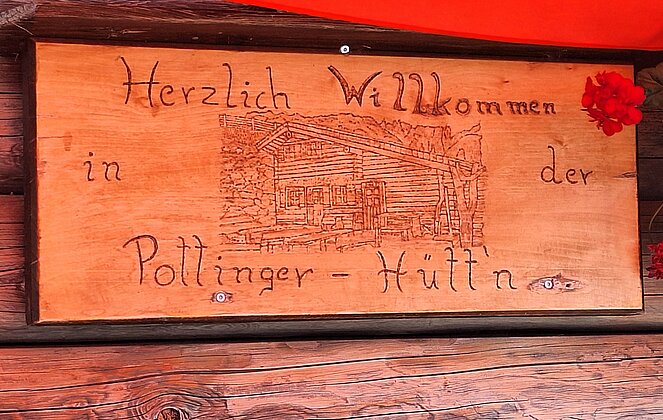 Herzlich Willkommen
in der
Pottinger - Hütt'n